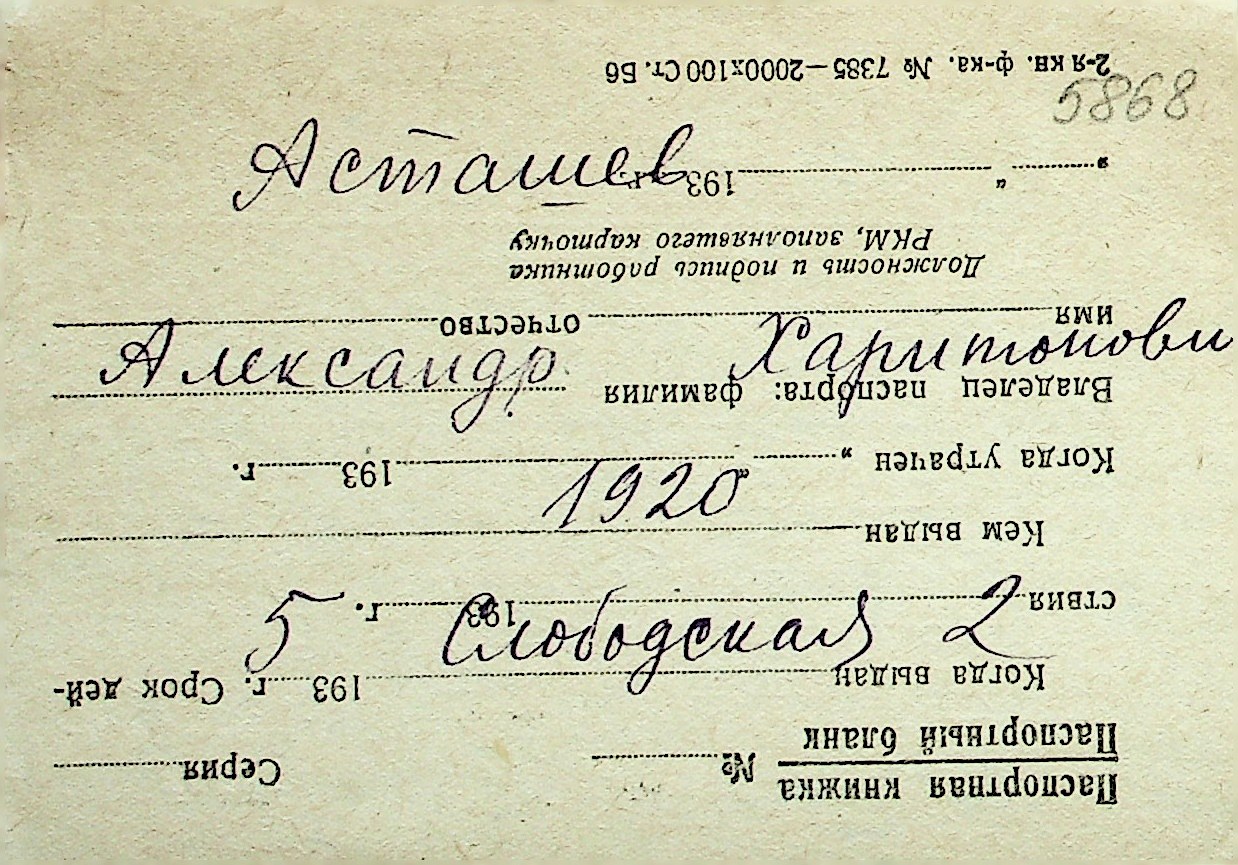 5868
Асташев
Александр Харитонови
1920
5 Слободская 2
Паспортная книжка № Серия
Паспортный бланк
Когда выдан 193 г. Срок дей-
ствия 193 г.
Кем выдан
Когда утрачен „ “ 193 г.
Владелец паспорта: фамилия
имя отчество
Должность и подпись работника
РКМ, заполнявшего карточку
„ “ 193 г.
2-я кн. ф-ка. № 7385—2000х100 Ст. Б6